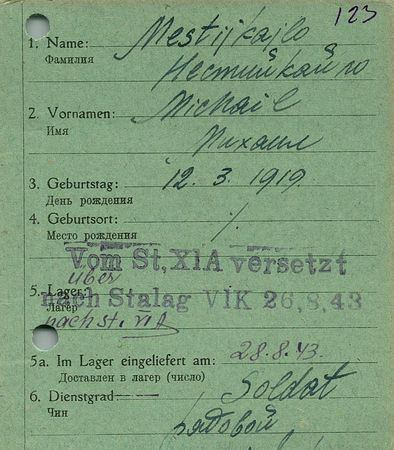 123
1. Name: Mestijkajlo
Фамилия Нестийкайло
2. Vornamen: Michail
Имя Михаил
3. Geburtstag: 12. 3. 1919.
День рождения
4. Geburtsort: ⁒
Место рождения
Vom St. XIA versetzt
über
5. Lager:
nach Stalag VIK 26.8.43
Лагерь
nach St. VIA
5a. Im Lager eingeliefert am: 28.8.43.
Доставлен в лагерь (число)
6. Dienstgrad: Soldat
Чин рядовой